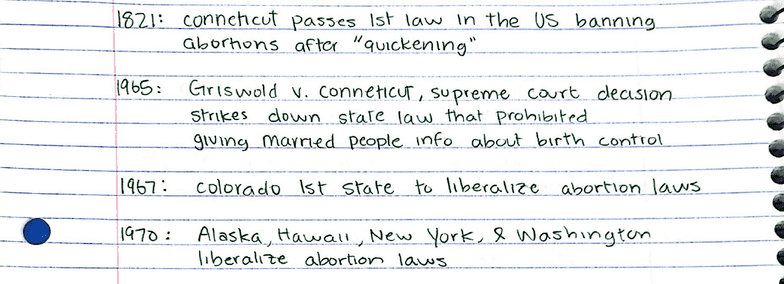 1821: conneticut passes 1st law in the US banning
abortions after "quickening"
1965: Griswold v. conneticut, supreme court decision
strikes down state law that prohibited
giving married people info about birth control
1967: colorado 1st state to liberalize abortion laws
1970: Alaska, Hawaii, New York, & Washington
liberalize abortion laws